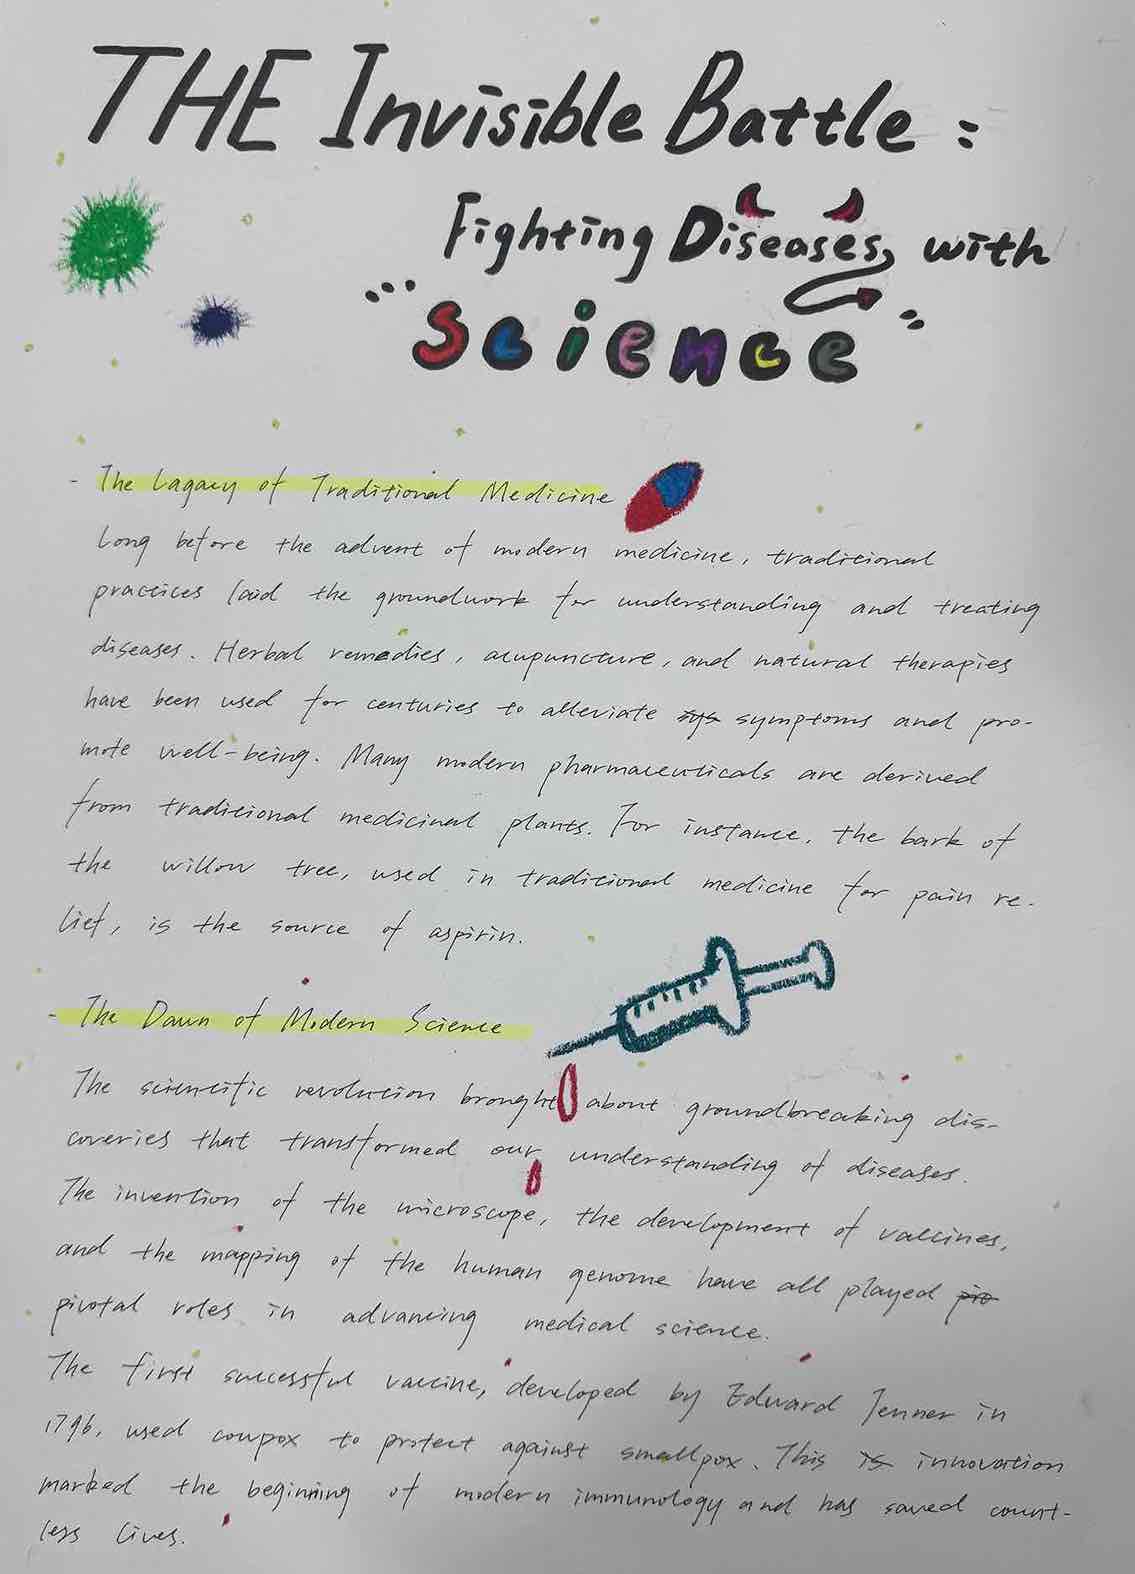 THE Invisible Battle :
Fighting Diseases, with
... "Science"
- The Lagacy of Traditional Medicine
Long before the advent of modern medicine, traditional
practices laid the groundwork for understanding and treating
diseases. Herbal remedies, acupuncture, and natural therapies
have been used for centuries to alleviate sys symptoms and pro-
mote well-being. Many modern pharmaceuticals are derived
from traditional medicinal plants. For instance, the bark of
the willow tree, used in traditional medicine for pain re-
lief, is the source of aspirin.
- The Dawn of Modern Science
The scientific revolution brought about groundbreaking dis-
coveries that transformed our understanding of diseases.
The invention of the microscope, the development of vaccines,
and the mapping of the human genome have all played pio
pivotal roles in advancing medical science.
The first successful vaccine, developed by Edward Jenner in
1796, used cowpox to protect against smallpox. This is innovation
marked the beginning of modern immunology and has saved count-
less lives.